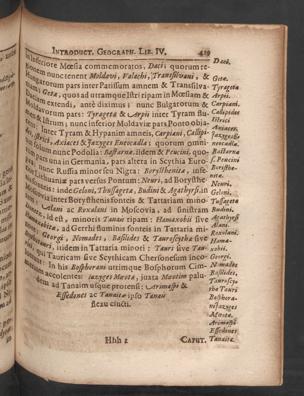 INTRODUCT. GEOGRAPH. LIB. IV. 419
in inferiore Mœsia commemoratos, Daci: quorum re-
gionem nunc tenent Moldavi, Valachi, Transsilvani, &
Hungarorum pars inter Patissum amnem & Transsilva-
niam; Getæ, quos ad utramque Istri ripam in Mœsiam &
Daciam extendi, antè diximus: nunc Bulgarorum &
Moldavorum pars: Tyragetæ & Arpii inter Tyram flu-
men & Istrum; nunc inferior Moldaviæ pars Ponto obja-
cens. Inter Tyram & Hypanim amneis, Carpiani, Callipi-
dæ, Istrici, Axiacæ & Jazyges Eneocadlæ: quorum omni-
um solum nunc Podolia: Bastarnæ, iidem & Peucini, quo-
rum pars una in Germania, pars altera in Scythia Euro-
pæa: nunc Russia minor seu Nigra: Borysthenitæ, infe-
rior Lithuaniæ pars versus Pontum: Neuri, ad Borysthe-
nis fonteis: inde Geloni, Thussagetæ, Budini & Agathyrsi, in
ter Borysthenis fonteis & Tartariam mino-
Alani ac Roxolani in Moscovia, ad sinistram
id est, minoris Tanæ ripam: Hamaxobii sive
ad Gerrhi fluminis fonteis in Tattaria mi-
Georgi, Nomades, Basilides & Tauroscythæ sive
itidem in Tattaria minori: Tauri sive Tau-
qui Tauricam sive Scythicam Chersonesum inco-
lunt: In his Bosphorani utrimque Bosphorum Cim-
merium accolentes: Jazyges Mæotæ, juxta Mæotim palu-
dem ad Tanaim usque protensi: Arimaspi &
Essedones ac Tanaitæ ipso Tanai
flexu cincti.
Hhh 2 CAPUT.
Daci.
Getæ.
Tyragetæ
Arpii.
Carpiani.
Callipidæ
Istrici
Axiacæ.
Bastarnæ
s. Peucini
Borysthe-
nitæ.
Neuri.
Geloni.
Tussagetæ
Budini.
Agathyrsi
Alani.
Roxolani.
Hama-
xobii.
Georgi.
Nomades
Basilides,
Tauroscy-
thæ Tauri
Bosphora-
ni Jazyges
Mæotæ.
Arimaspi
Essedones
Tanaitæ.